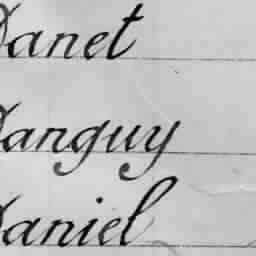 Danet
Danguy
Daniel